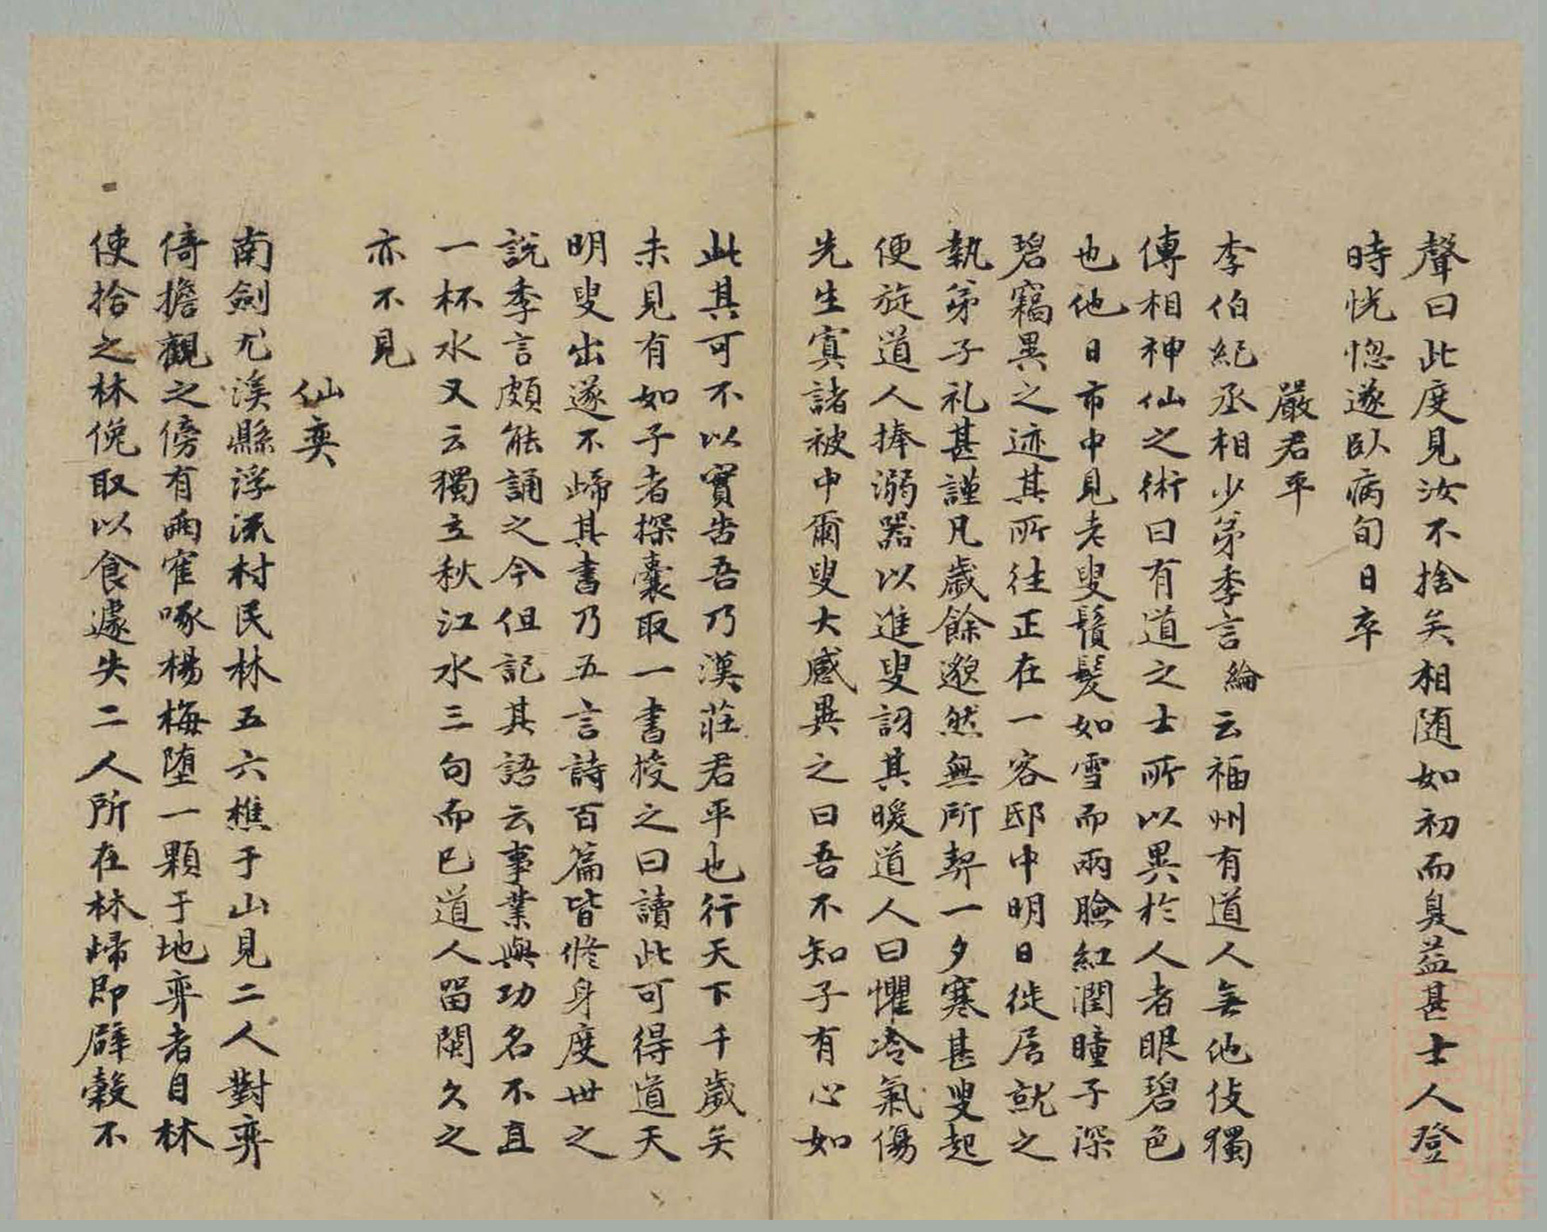 聲曰此度見汝不捨矣相随如初而臭益甚士人登
時恍惚遂臥病旬日卒
嚴君平
李伯紀丞相少苐季言綸云福州有道人無他伎獨
傳相神仙之術曰有道之士所以異於人者眼碧色
也他日市中見老叟鬚髮如雪而兩臉紅潤瞳子深
碧竊異之迹其所往正在一客邸中明日徙居就之
執苐子礼甚謹凡歲餘邈然無所契一夕寒甚叟起
便旋道人捧溺器以進叟訝其暖道人曰懼冷氣傷
先生寘諸被中爾叟大感異之曰吾不知子有心如
此其可不以實告吾乃漢莊君平也行天下千歲矣
未見有如子者探囊取一書授之曰讀此可得道天
明叟出遂不歸其書乃五言詩百篇皆修身度世之
說季言頗能誦之今但記其語云事業與功名不直
一杯水又云獨立秋江水三句而已道人留閩久之
亦不見
仙奕
南劍尤溪縣浮流村民林五六樵于山見二人對弈
倚擔觀之傍有兩寉啄楊梅墮一顆于地弈者目林
使拾之林俛取以食遽失二人所在林歸即辟穀不